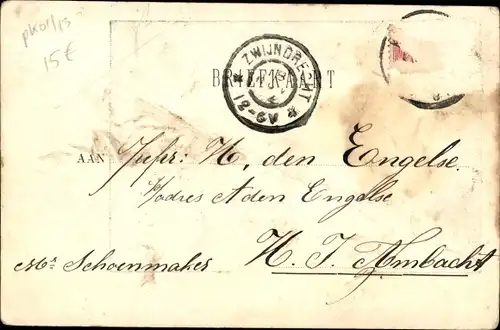 pkorl/ps
15€
ZWIJNDRECHT
12-6V
BRIEFKAART
AAN Jufr: H, den Engelse.
Adres A den Engelse
Mej. Schoenmaker H. I. Ambacht